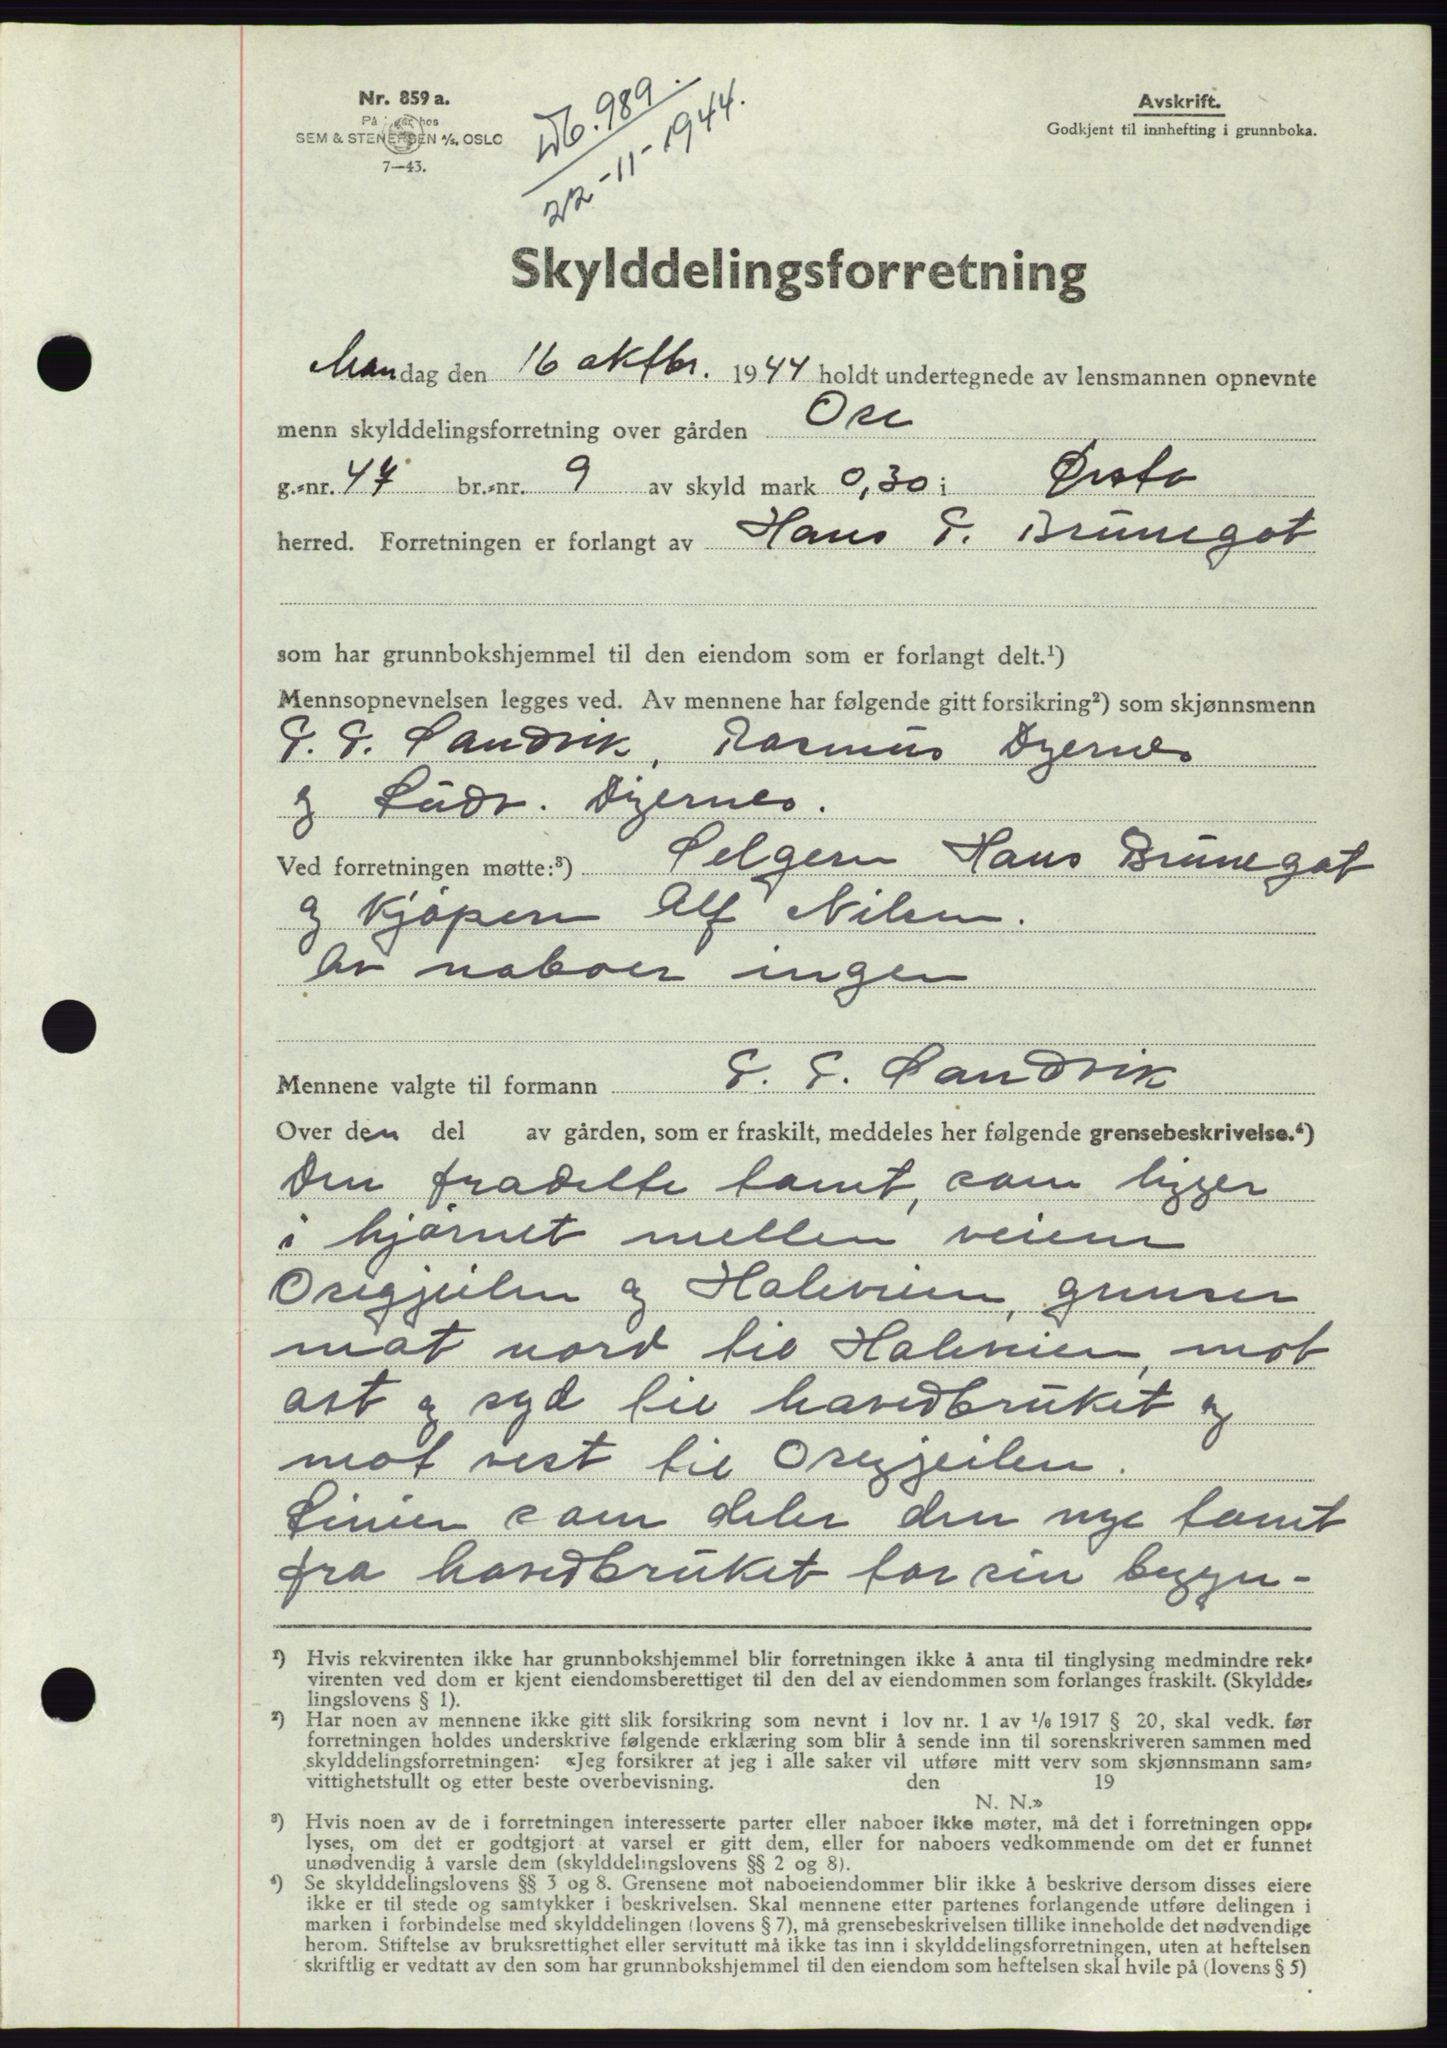 Nr. 859 a.
På lager hos
SEM & STENERSEN A/S, OSLO
7—43.
Db. 989.
22-11-1944.
Avskrift.
Godkjent til innhefting i grunnboka.
Skylddelingsforretning
Mandag den 16 oktbr. 1944 holdt undertegnede av lensmannen opnevnte
menn skylddelingsforretning over gården Ose
g.=nr. 47 br.=nr. 9 av skyld mark 0,30 i Ørsta
herred. Forretningen er forlangt av Hans P. Brunegot
som har grunnbokshjemmel til den eiendom som er forlangt delt.¹)
Mennsopnevnelsen legges ved. Av mennene har følgende gitt forsikring²) som skjønnsmenn
P. P. Sandvik, Rasmus Dyernes
og Ludv. Dyernes.
Ved forretningen møtte:³) Selgern Hans Brunegot
og kjøpern Alf Nilsen.
Av naboer ingen
Mennene valgte til formann P. P. Sandvik
Over den del av gården, som er fraskilt, meddeles her følgende grensebeskrivelse.⁴)
Den fradelte tomt, som ligger
i hjørnet mellem veiene
Osegjeilen og Haleveien, grenser
mot nord til Haleveien, mot
øst og syd til hovedbruket og
mot vest til Osegjeilen.
Linien som deler den nye tomt
fra hovedbruket tar sin begyn-
¹) Hvis rekvirenten ikke har grunnbokshjemmel blir forretningen ikke å anta til tinglysing medmindre rek=
virenten ved dom er kjent eiendomsberettiget til den del av eiendommen som forlanges fraskilt. (Skyldde=
lingslovens § 1).
²) Har noen av mennene ikke gitt slik forsikring som nevnt i lov nr. 1 av 1/6 1917 § 20, skal vedk. før
forretningen holdes underskrive følgende erklæring som blir å sende inn til sorenskriveren sammen med
skylddelingsforretningen: «Jeg forsikrer at jeg i alle saker vil utføre mitt verv som skjønnsmann sam=
vittighetsfullt og etter beste overbevisning. den 19
N. N.»
³) Hvis noen av de i forretningen interesserte parter eller naboer ikke møter, må det i forretningen opp=
lyses, om det er godtgjort at varsel er gitt dem, eller for naboers vedkommende om det er funnet
unødvendig å varsle dem (skylddelingslovens §§ 2 og 8).
⁴) Se skylddelingslovens §§ 3 og 8. Grensene mot naboeiendommer blir ikke å beskrive dersom disses eiere
ikke er til stede og samtykker i beskrivelsen. Skal mennene etter partenes forlangende utføre delingen i
marken i forbindelse med skylddelingen (lovens § 7), må grensebeskrivelsen tillike inneholde det nødvendige
herom. Stiftelse av bruksrettighet eller servitutt må ikke tas inn i skylddelingsforretningen, uten at heftelsen
skriftlig er vedtatt av den som har grunnbokshjemmel til den eiendom som heftelsen skal hvile på (lovens § 5)